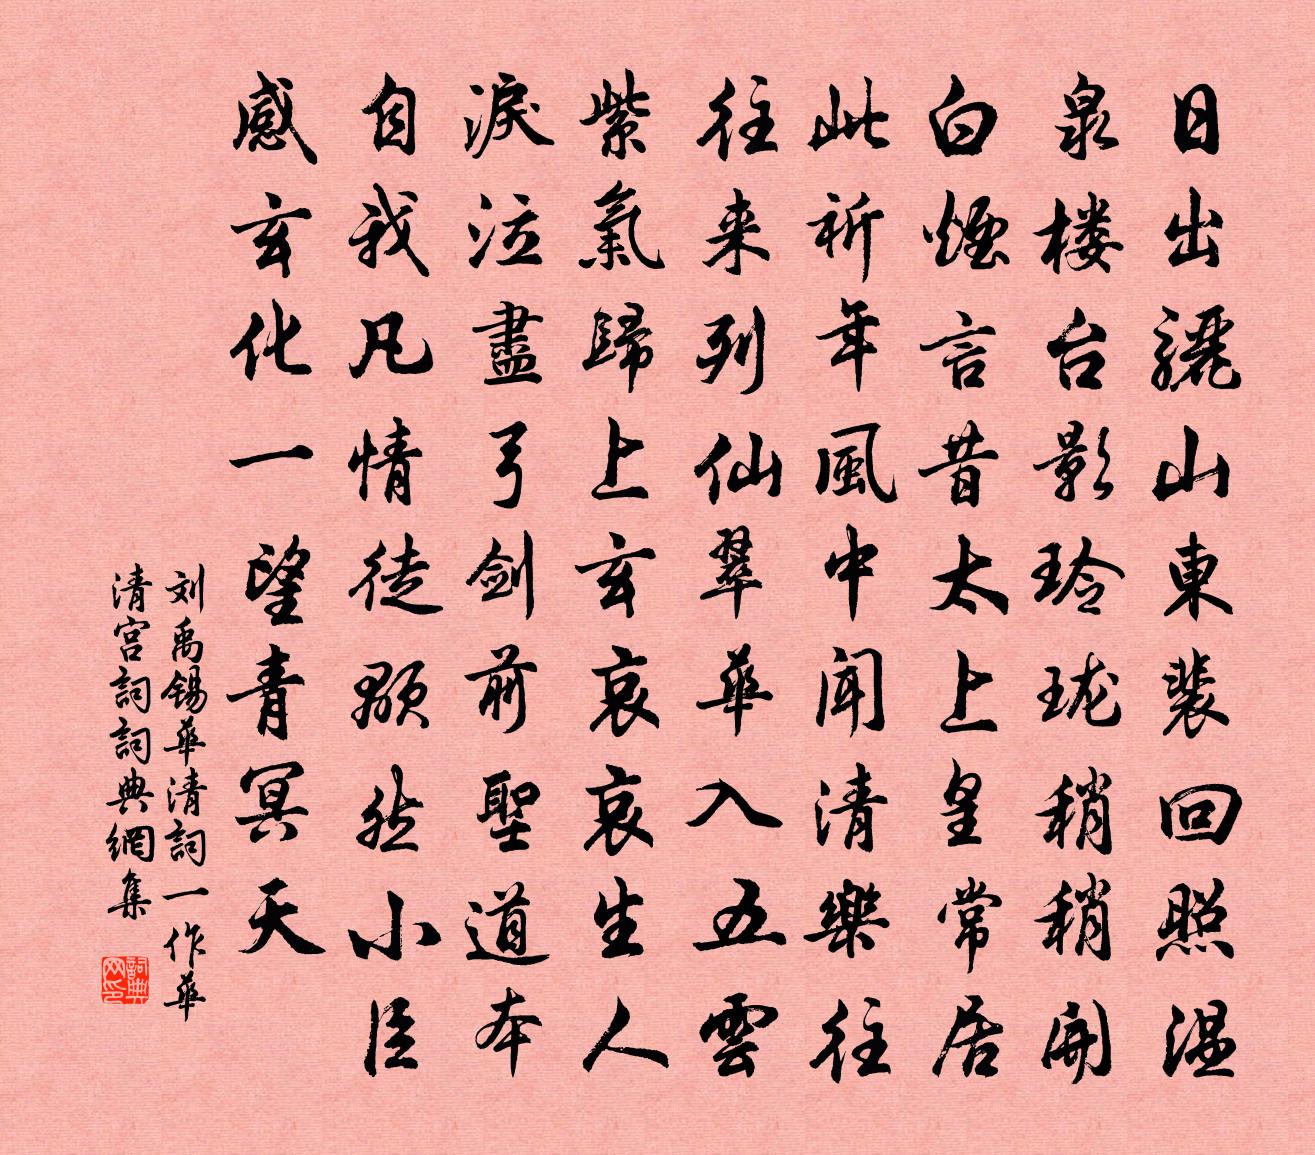 日出驪山東裴回照温
泉楼台影玲珑稍稍開
白煙言昔太上皇常居
此祈年風中聞清樂往
往来列仙翠華入五雲
紫氣歸上玄哀哀生人
淚泣盡弓剑前聖道本
自我凡情徒顒然小臣
感玄化一望青冥天
刘禹锡華清詞一作華
清宫詞詞典網集
詞典网印